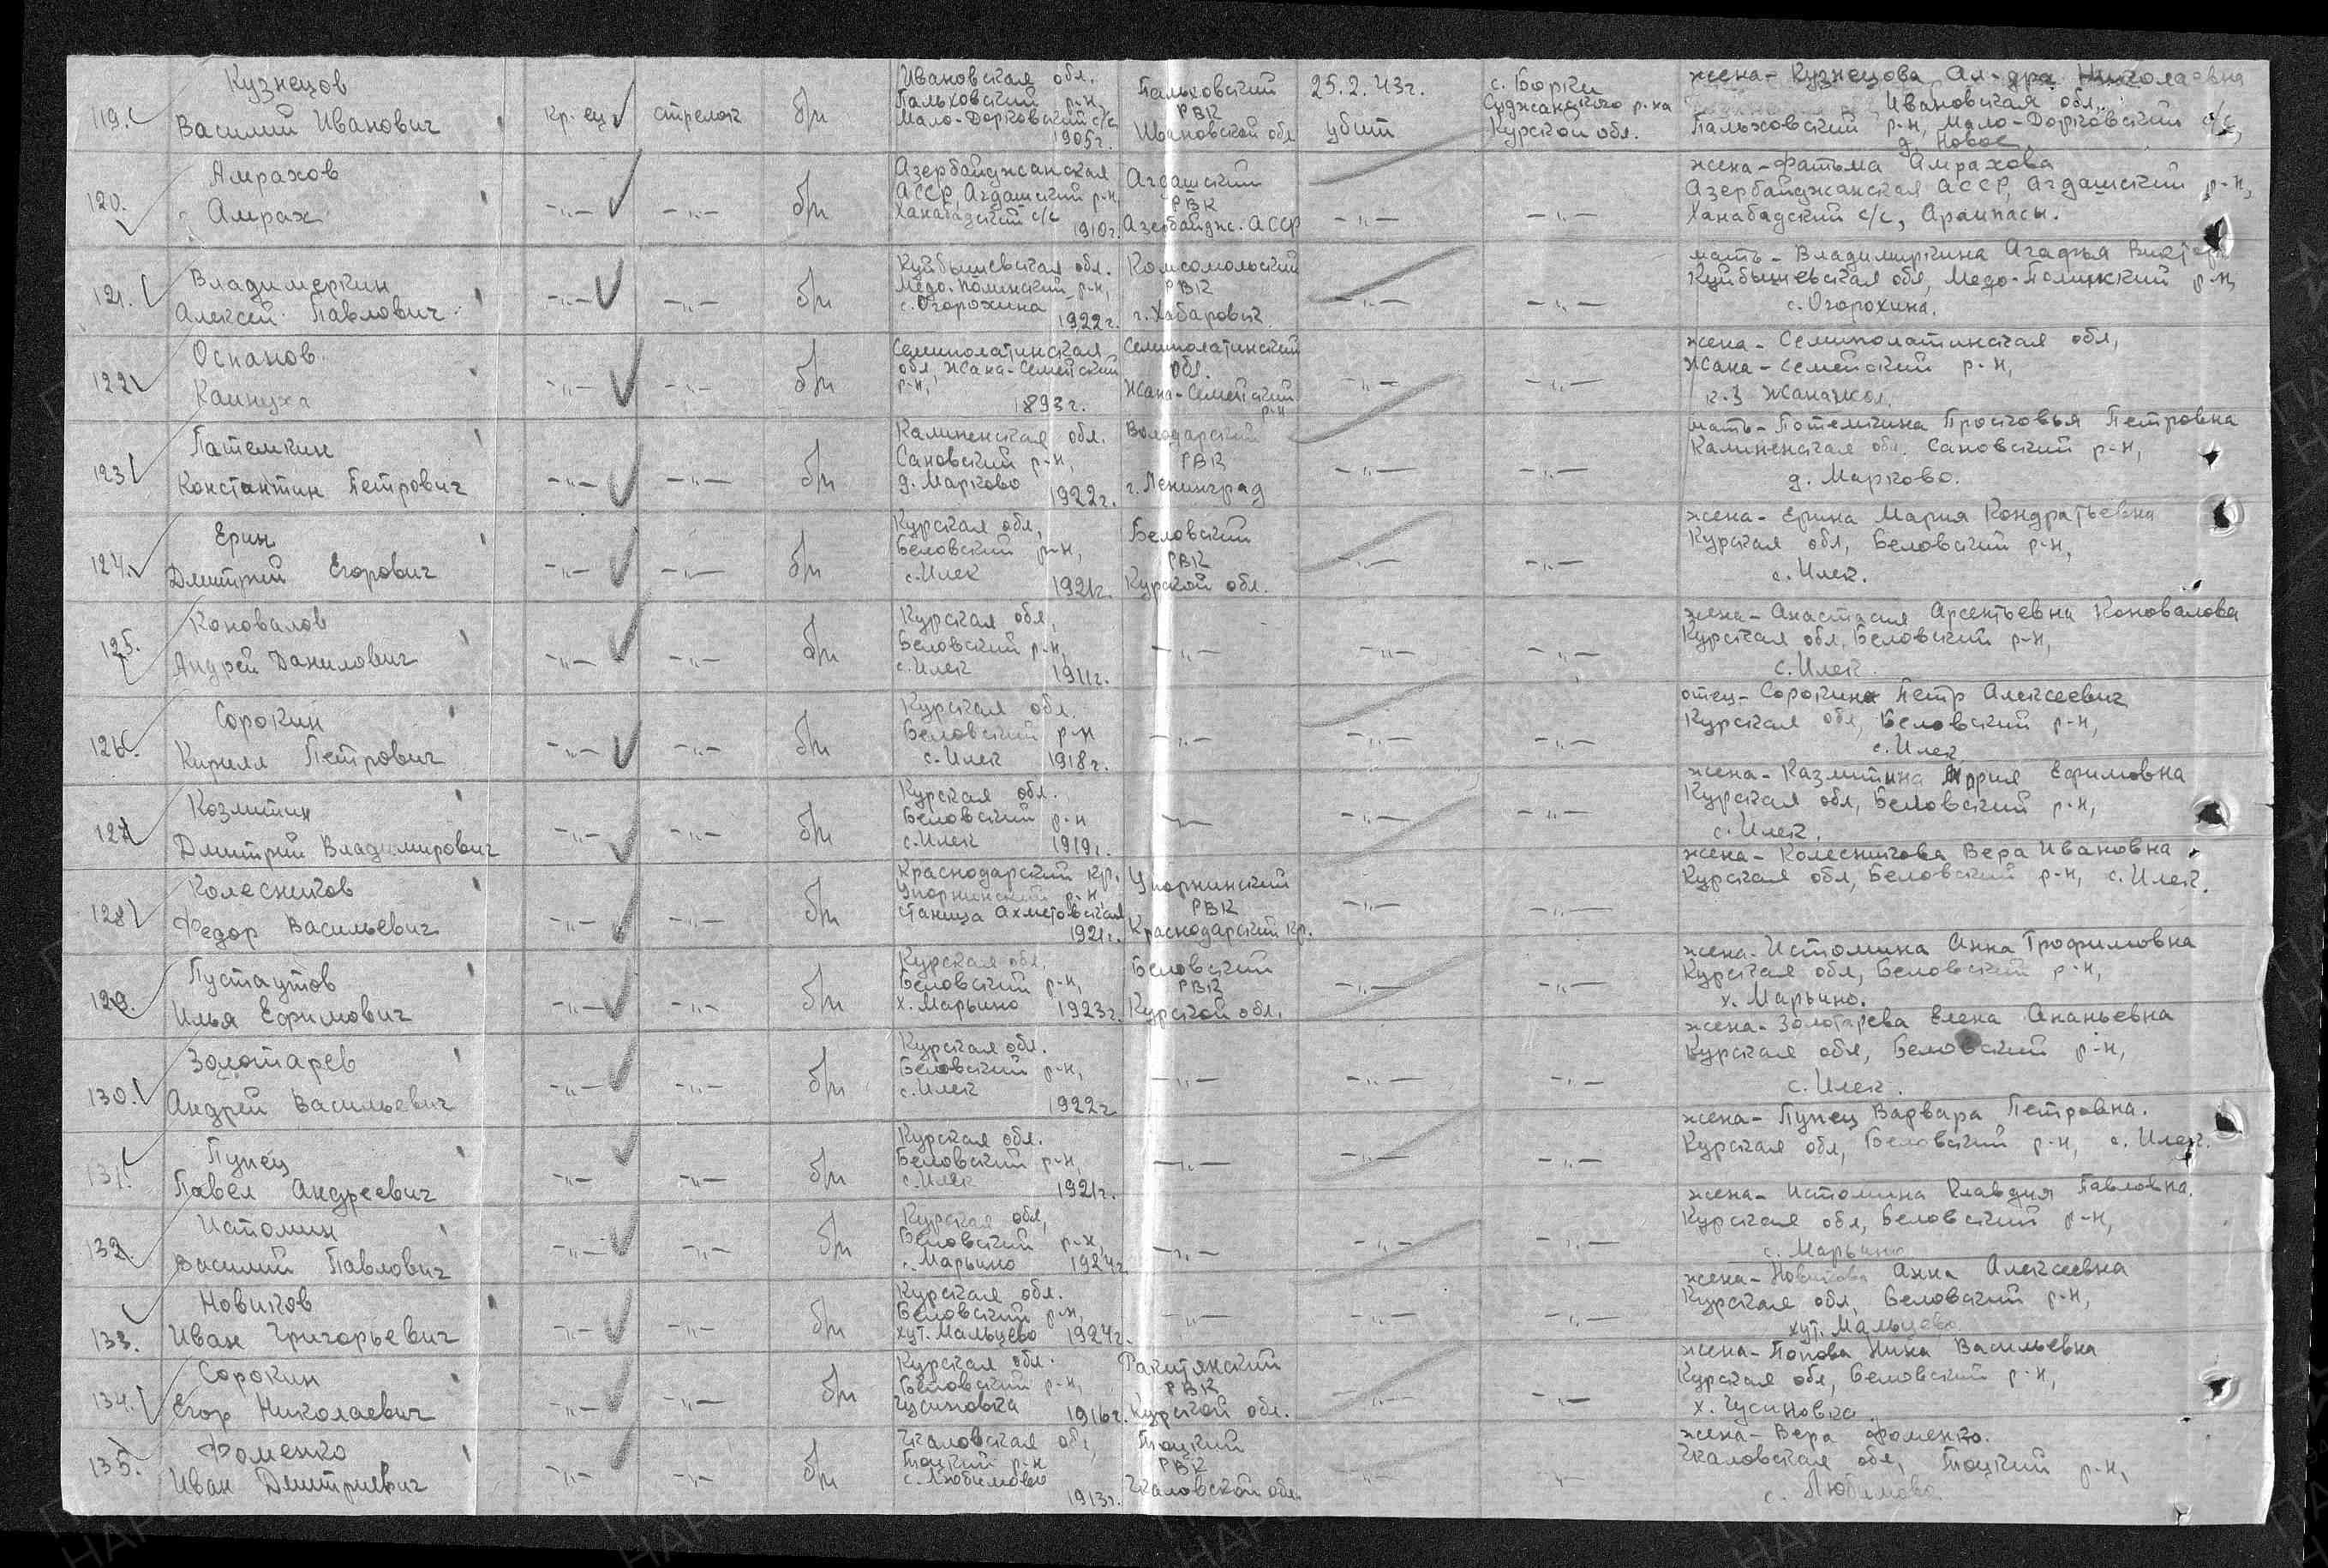 119. Кузнецов
Василий Иванович
кр-ец стрелок б/п
Ивановская обл.
Пальховский р-н,
Мало-Дорковский с/с
1905г.
Пальховский
РВК
Ивановской обл
25.2.43г.
убит
с. Борки
Суджанского р-на
Курской обл.
жена - Кузнецова Ал-дра Николаевна
Ивановская обл.,
Пальховский р-н, Мало-Дорковский с/с,
д. Новое
120. Амрахов
Амрах
-"- -"- б/п
Азербайджанская
АССР, Агдашский р-н,
Ханабадский с/с
1910г.
Агдашский
РВК
Азербайдж. АССР
-"- -"-
жена - Фатьма Амрахова
Азербайджанская АССР, Агдашский р-н,
Ханабадский с/с, Арампасы.
121. Владимеркин
Алексей Павлович
-"- -"- б/п
Куйбышевская обл.
Медо-Полинский р-н,
с. Огорохина
1922г.
Комсомольский
РВК
г. Хабаровск
-"- -"-
мать - Владимиркина Агафья
Куйбышевская обл, Медо-Полинский р-н,
с. Огорохина.
122. Оспанов
Каинуха
-"- -"- б/п
Семиполатинская
обл, Жана-Семейский
р-н,
1893г.
Семиполатинский
обл.
Жана-Семейский
р-н
-"- -"-
жена - Семиполатинская обл,
Жана-семейский р-н,
к-з Жанажол.
123. Патемкин
Константин Петрович
-"- -"- б/п
Калиненская обл.
Сановский р-н,
д. Марково
1922г.
Володарский
РВК
г. Ленинград
-"- -"-
мать - Потемкина Просковья Петровна
Калиненская обл. Сановский р-н,
д. Марково.
124. Ерин
Дмитрий Егорович
-"- -"- б/п
Курская обл,
Беловский р-н,
с. Илек
1921г.
Беловский
РВК
Курской обл.
-"- -"-
жена - Ерина Мария Кондратьевна
Курская обл, Беловский р-н,
с. Илек.
125. Коновалов
Андрей Данилович
-"- -"- б/п
Курская обл,
Беловский р-н,
с. Илек
1911г.
-"- -"- -"-
жена - Анастасия Арсентьевна Коновалова
Курская обл, Беловский р-н,
с. Илек
126. Сорокин
Кирилл Петрович
-"- -"- б/п
Курская обл.
Беловский р-н
с. Илек 1918г.
-"- -"- -"-
отец - Сорокин Петр Алексеевич
Курская обл, Беловский р-н,
с. Илек
127. Козмитин
Дмитрий Владимирович
-"- -"- б/п
Курская обл.
Беловский р-н
с. Илек 1919г.
-"- -"- -"-
жена - Казмитина Мария Ефимовна
Курская обл, Беловский р-н,
с. Илек.
128. Колесников
Федор Васильевич
-"- -"- б/п
Краснодарский кр.
Упорнинский р-н,
станица Ахметовская
1921г.
Упорнинский
РВК
Краснодарский кр.
-"- -"-
жена - Колесникова Вера Ивановна
Курская обл, Беловский р-н, с. Илек.
129. Пустаутов
Илья Ефимович
-"- -"- б/п
Курская обл,
Беловский р-н,
х. Марьино 1923г.
Беловский
РВК
Курской обл.
-"- -"-
жена - Истомина Анна Трофимовна
Курская обл, Беловский р-н,
х. Марьино.
130. Золотарев
Андрей Васильевич
-"- -"- б/п
Курская обл.
Беловский р-н,
с. Илек
1922г
-"- -"- -"-
жена - Золотарева Елена Ананьевна
Курская обл, Беловский р-н,
с. Илек.
131. Пунец
Павел Андреевич
-"- -"- б/п
Курская обл.
Беловский р-н,
с. Илек
1921г.
-"- -"- -"-
жена - Пунец Варвара Петровна.
Курская обл, Беловский р-н, с. Илек.
132. Истомин
Василий Павлович
-"- -"- б/п
Курская обл,
Беловский р-н,
с. Марьино 1924г.
-"- -"- -"-
жена - Истомина Клавдия Павловна.
Курская обл, Беловский р-н,
с. Марьино
133. Новиков
Иван Григорьевич
-"- -"- б/п
Курская обл.
Беловский р-н,
хут. Мальцево 1924г.
-"- -"- -"-
жена - Новикова Анна Алексеевна
Курская обл, Беловский р-н,
хут. Мальцево.
134. Сорокин
Егор Николаевич
-"- -"- б/п
Курская обл.
Беловский р-н,
Гусиновка 1916г.
Ракитянский
РВК
Курской обл.
-"- -"-
жена - Попова Нина Васильевна
Курская обл, Беловский р-н,
х. Гусиновка
135. Фоменко
Иван Дмитриевич
-"- -"- б/п
Чкаловская обл,
Тоцкий р-н
с. Любимово
1913г.
Тоцкий
РВК
Чкаловской обл.
-"- -"-
жена - Вера Фоменко.
Чкаловская обл, Тоцкий р-н,
с. Любимово